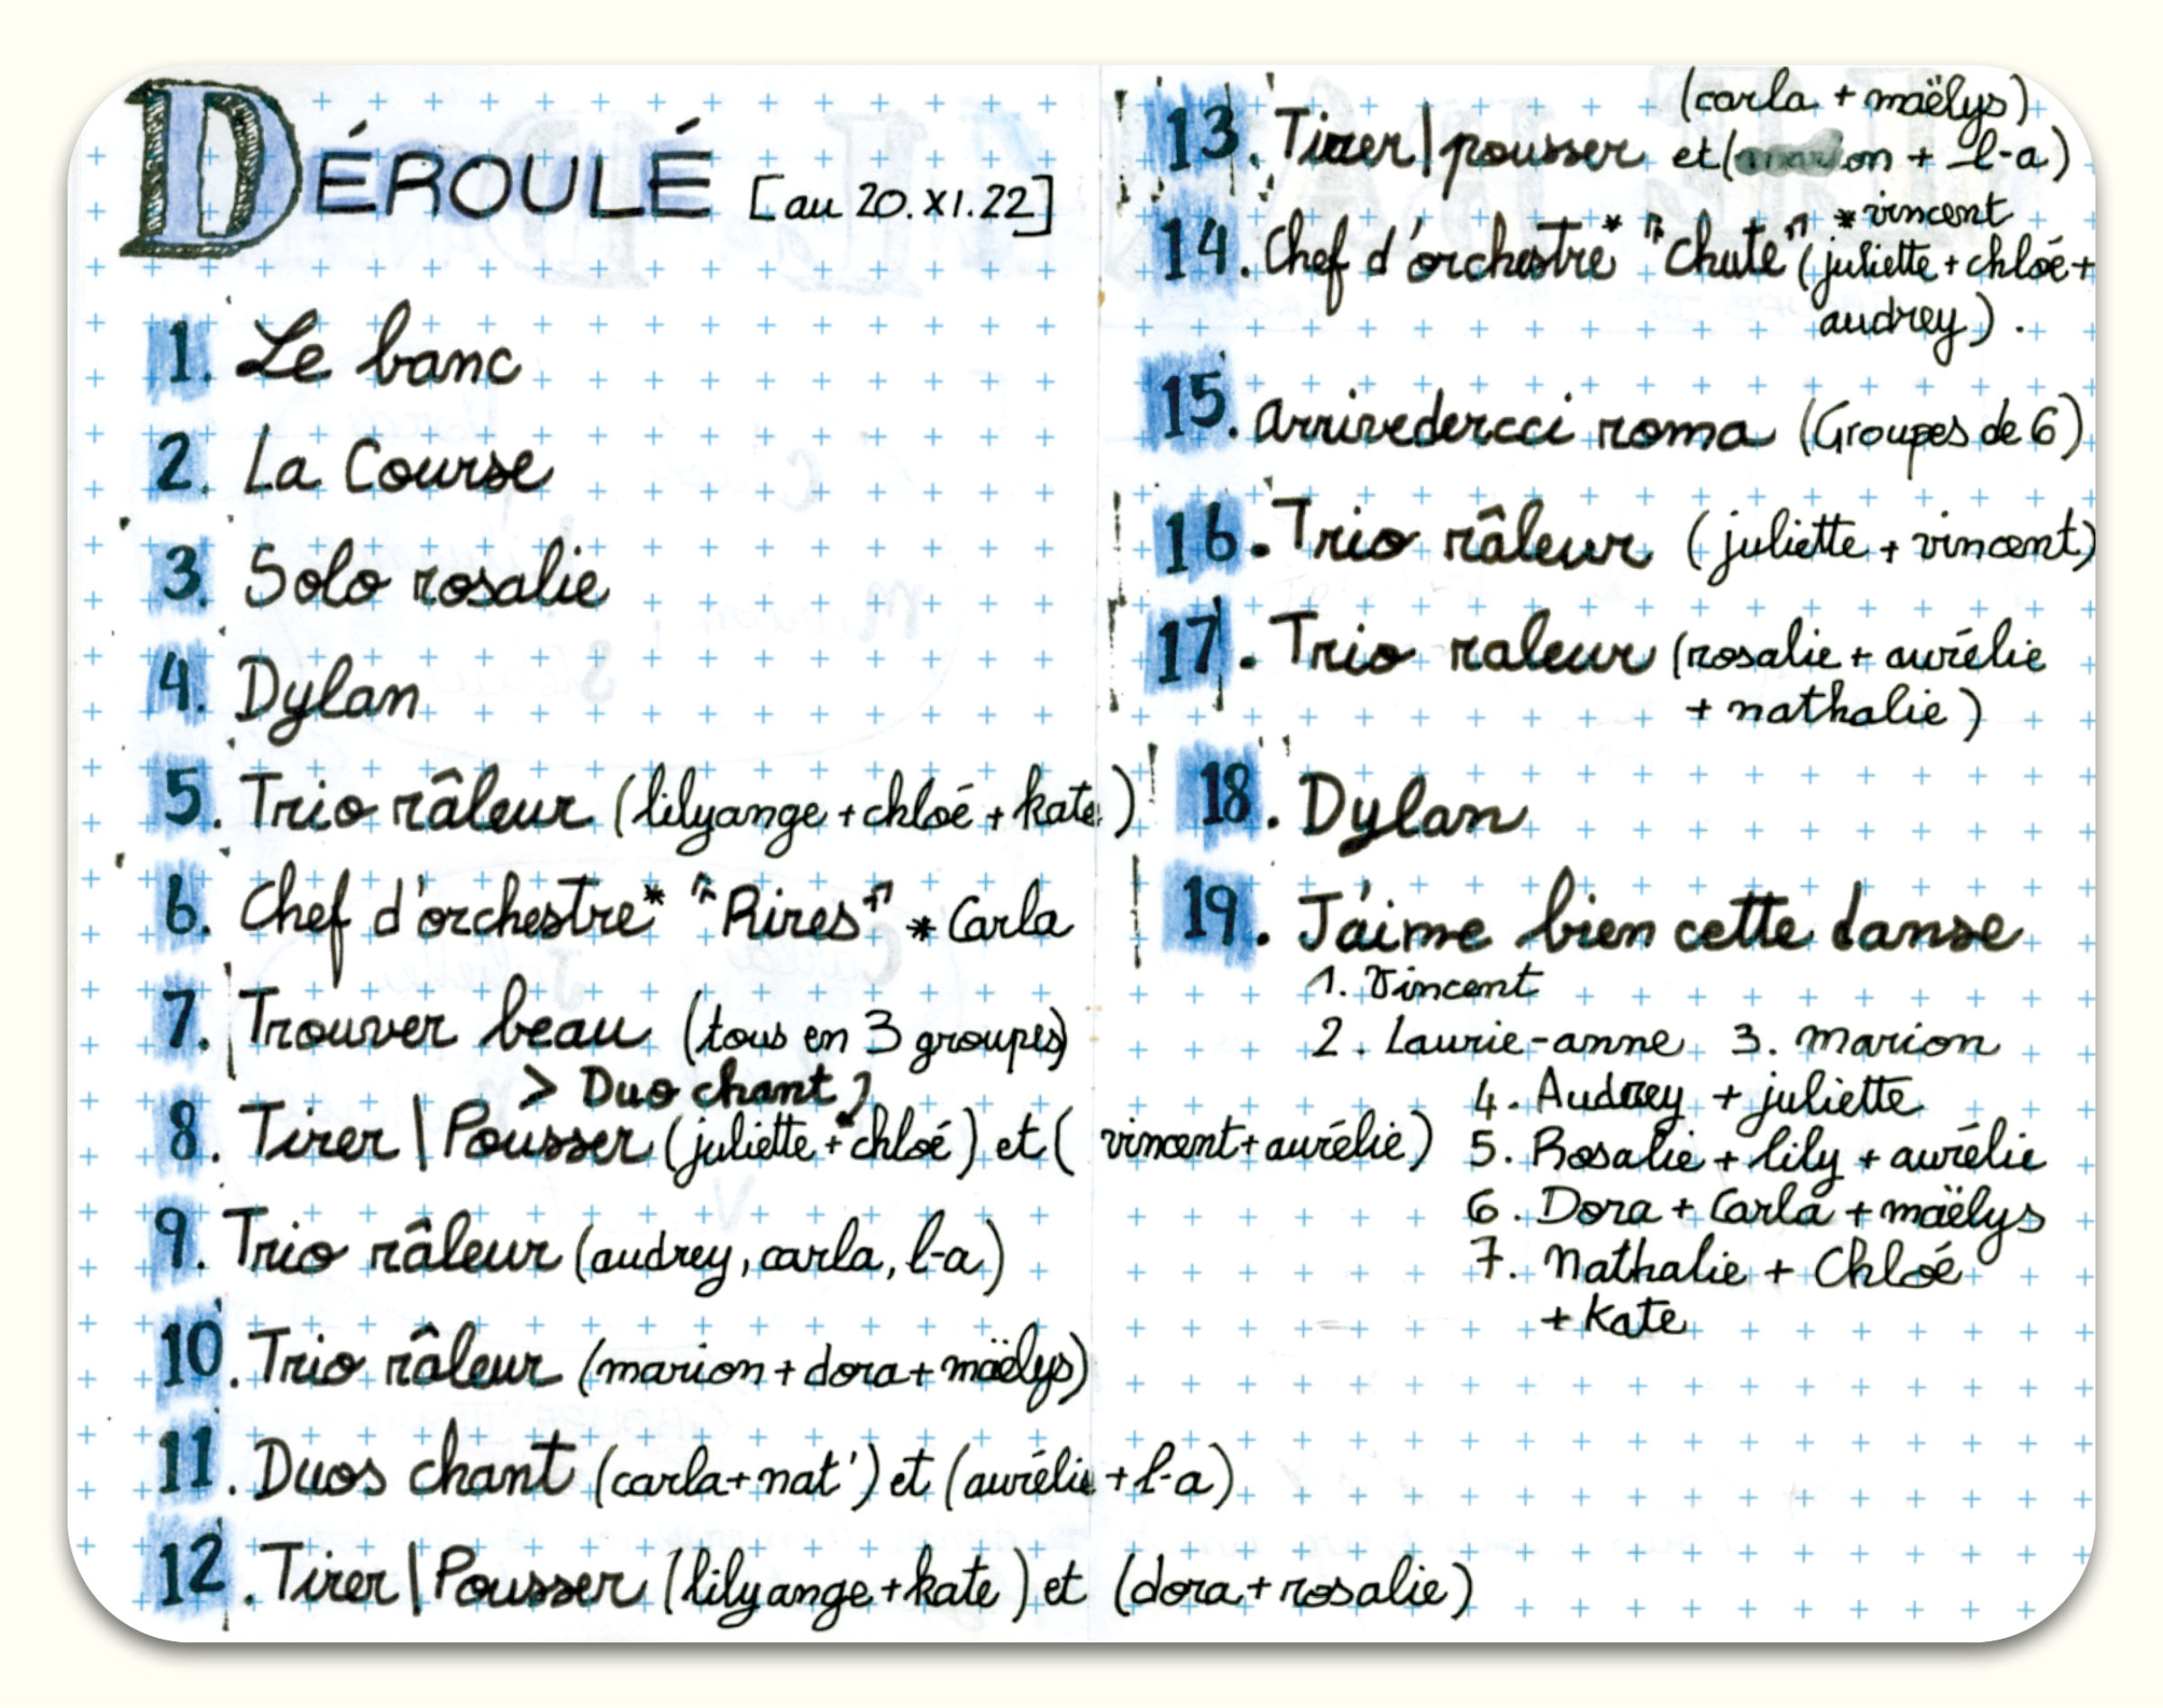 DÉROULÉ [au 20.XI.22]
1. Le banc
2. La Course
3. Solo rosalie
4. Dylan
5. Trio râleur (lilyange + chloé + kate)
6. Chef d'orchestre* "Rires" * Carla
7. Trouver beau (tous en 3 groupes)
> Duo chant
8. Tirer | Pousser (juliette + chloé) et (vincent + aurélie)
9. Trio râleur (audrey, carla, l-a)
10. Trio râleur (marion + dora + maëlys)
11. Duos chant (carla + nat') et (aurélie + l-a)
12. Tirer | Pousser (lilyange + kate) et (dora + rosalie)
(carla + maëlys)
13. Tirer | pousser et (marion + l-a)
* vincent
14. Chef d'orchestre* "chute" (juliette + chloé +
audrey).
15. arrivedercci roma (Groupes de 6)
16. Trio râleur (juliette + vincent)
17. Trio raleur (rosalie + aurélie
+ nathalie)
18. Dylan
19. J'aime bien cette danse
1. Vincent
2. Laurie-anne 3. marion
4. Audrey + juliette
5. Rosalie + lily + aurélie
6. Dora + Carla + maëlys
7. Nathalie + Chloé
+ kate